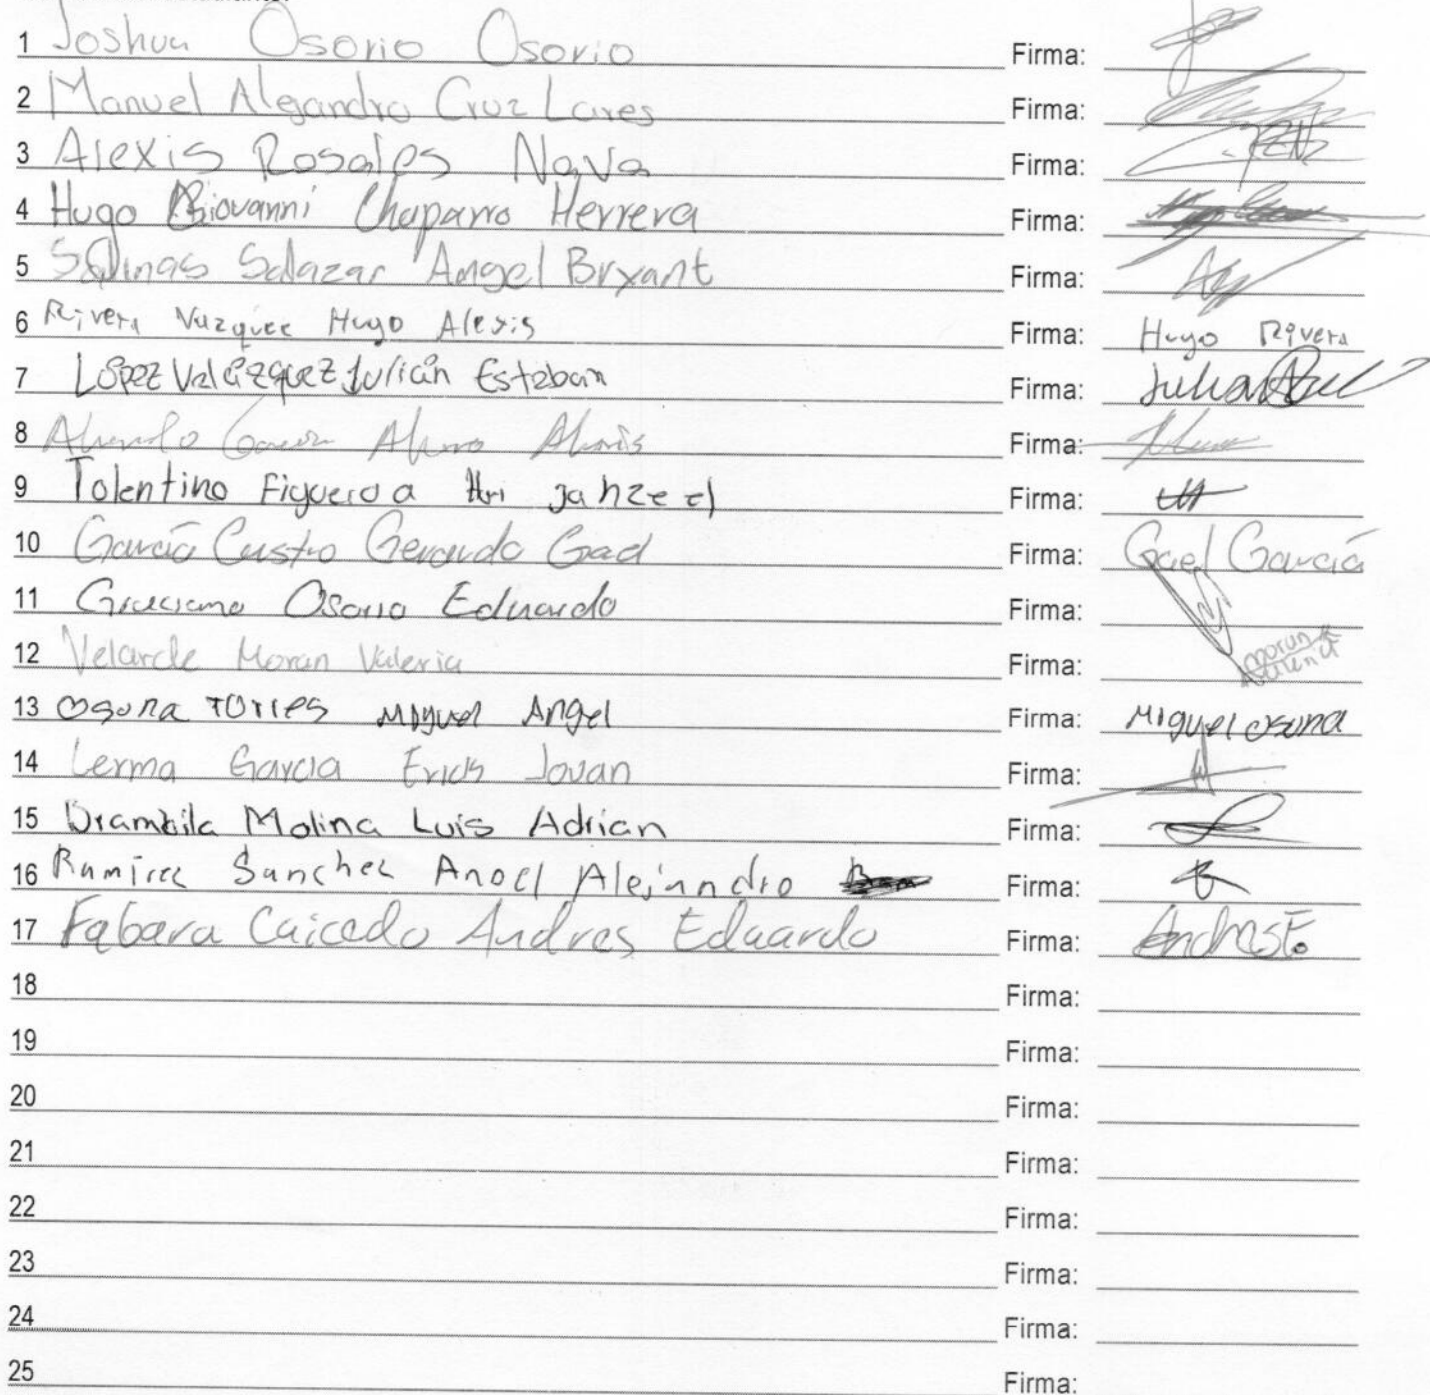 1 Joshua Osorio Osorio Firma:
2 Manuel Alejandro Cruz Lares Firma:
3 Alexis Rosales Nava Firma:
4 Hugo Giovanni Chaparro Herrera Firma:
5 Salinas Salazar Angel Bryant Firma:
6 Rivera Vazquez Hugo Alexis Firma: Hugo Rivera
7 López Velázquez Julián Esteban Firma: Julian
8 Firma:
9 Tolentino Figueroa Jahzeel Firma:
10 García Castro Gerardo Gael Firma: Gael García
11 Graciano Osorio Eduardo Firma:
12 Velarde Moran Valeria Firma: Moran Valeria
13 Osuna Torres Miguel Angel Firma: Miguel Osuna
14 Lerma Garcia Jovan Firma:
15 Brambila Molina Luis Adrian Firma:
16 Ramirez Sanchez Alejandro Firma:
17 Fabara Caicedo Andres Eduardo Firma: Andres E.
18 Firma:
19 Firma:
20 Firma:
21 Firma:
22 Firma:
23 Firma:
24 Firma:
25 Firma: